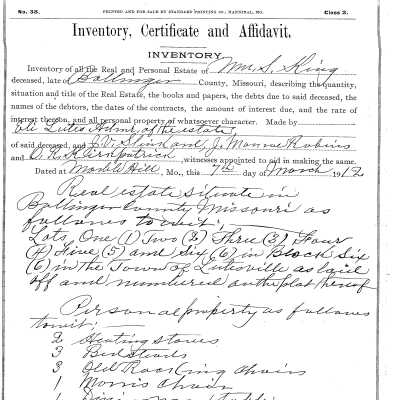 No. 33. PRINTED AND FOR SALE BY STANDARD PRINTING CO., HANNIBAL, MO. Class 3.
Inventory, Certificate and Affidavit.
INVENTORY
Inventory of all the Real and Personal Estate of Wm. S. King
deceased, late of Bollinger County, Missouri, describing the quantity,
situation and title of the Real Estate, the books and papers, the debts due to said deceased, the
names of the debtors, the dates of the contracts, the amount of interest due, and the rate of
interest thereon, and all personal property of whatsoever character. Made by
Eli Lutes Admr. of the estate
of said deceased, and J. Monroe Robins
and Kirkpatrick witnesses appointed to aid in making the same.
Dated at Marble Hill, Mo., this 7th day of March 1912
Real estate situate in
Bollinger County Missouri as
follows to wit:
Lots, One (1) Two (2) Three (3) Four
(4) Five (5) and Six (6) in Block Six
(6) in the Town of Lutesville as laid
off and numbered on the plat thereof
Personal property as follows
to wit:
2 Heating stoves
3 Bedsteads
3 Old Rocking chairs
1 Morris chair
1